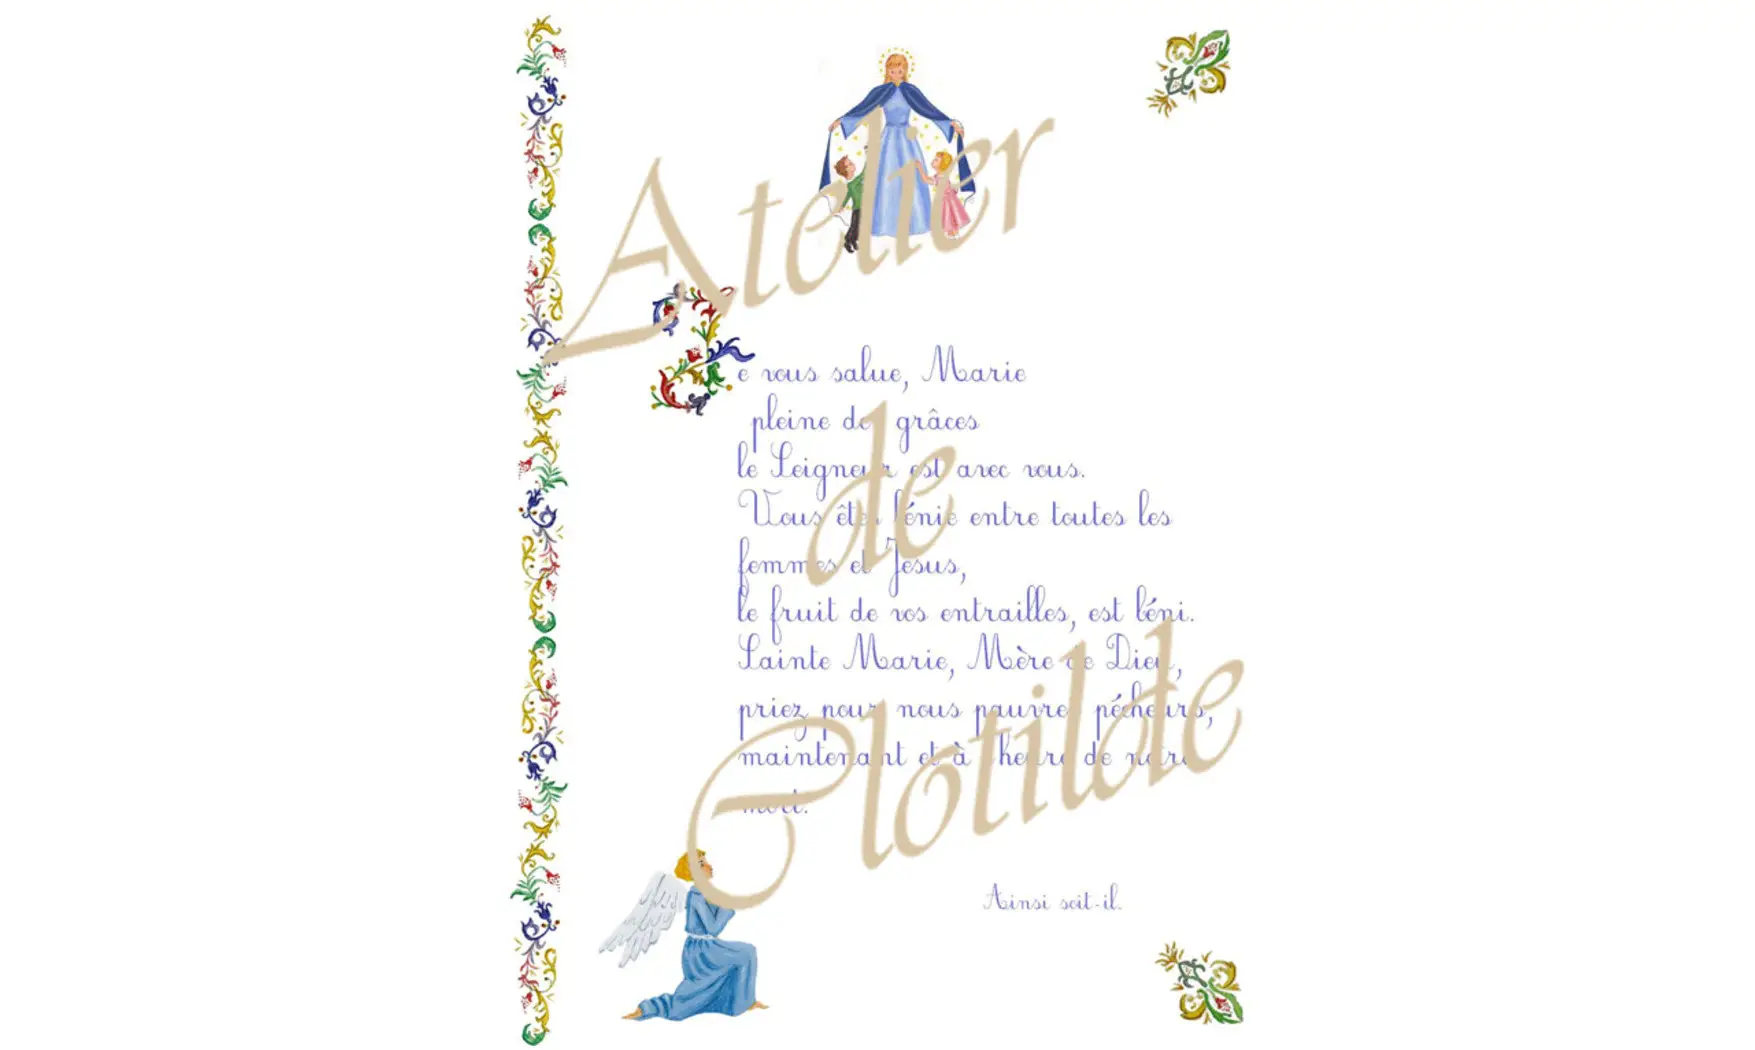 Atelier
de
Clotilde
Je vous salue, Marie
pleine de grâces
le Seigneur est avec vous.
Vous êtes bénie entre toutes les
femmes et Jésus,
le fruit de vos entrailles, est béni.
Sainte Marie, Mère de Dieu,
priez pour nous pauvres pécheurs,
maintenant et à l'heure de notre
mort.
Ainsi soit-il.